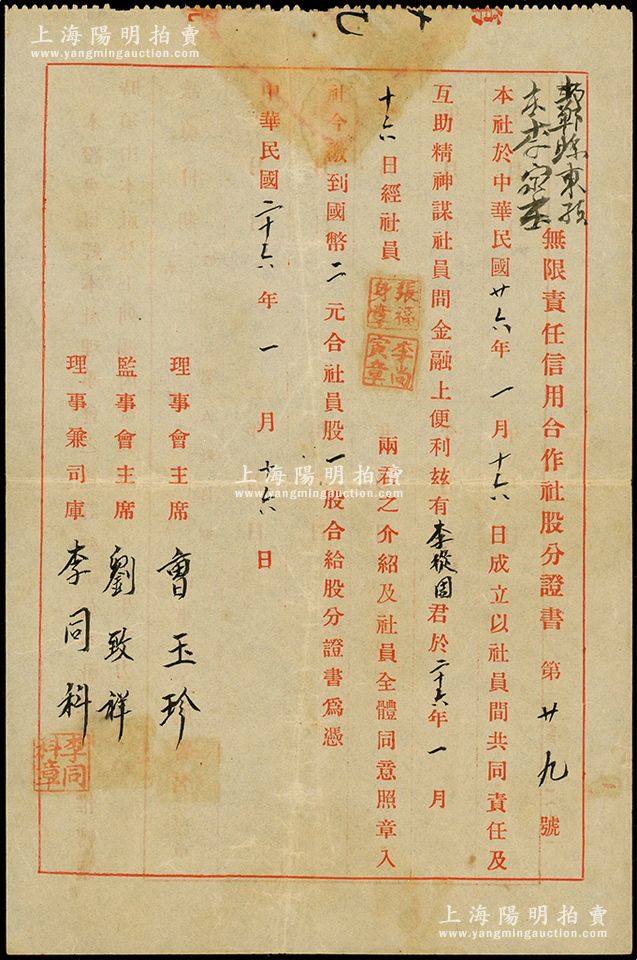 上海陽明拍賣
www.yangmingauction.com
縣東
無限責任信用合作社股分證書 第廿九號
本社於中華民國廿六年一月十六日成立以社員間共同責任及
互助精神謀社員間金融上便利茲有李從固君於二十六年一月
十六日經社員 兩君之介紹及社員全體同意照章入
張福身章
李尚寅章
社今繳到國幣二元合社員股一股合給股分證書爲憑
中華民國二十六年一月十六日
理事會主席 曹玉珍
監事會主席 劉致祥
理事兼司庫 李同科
李同科章
上海陽明拍賣
www.yangmingauction.com
上海陽明拍賣
www.yangmingauction.com